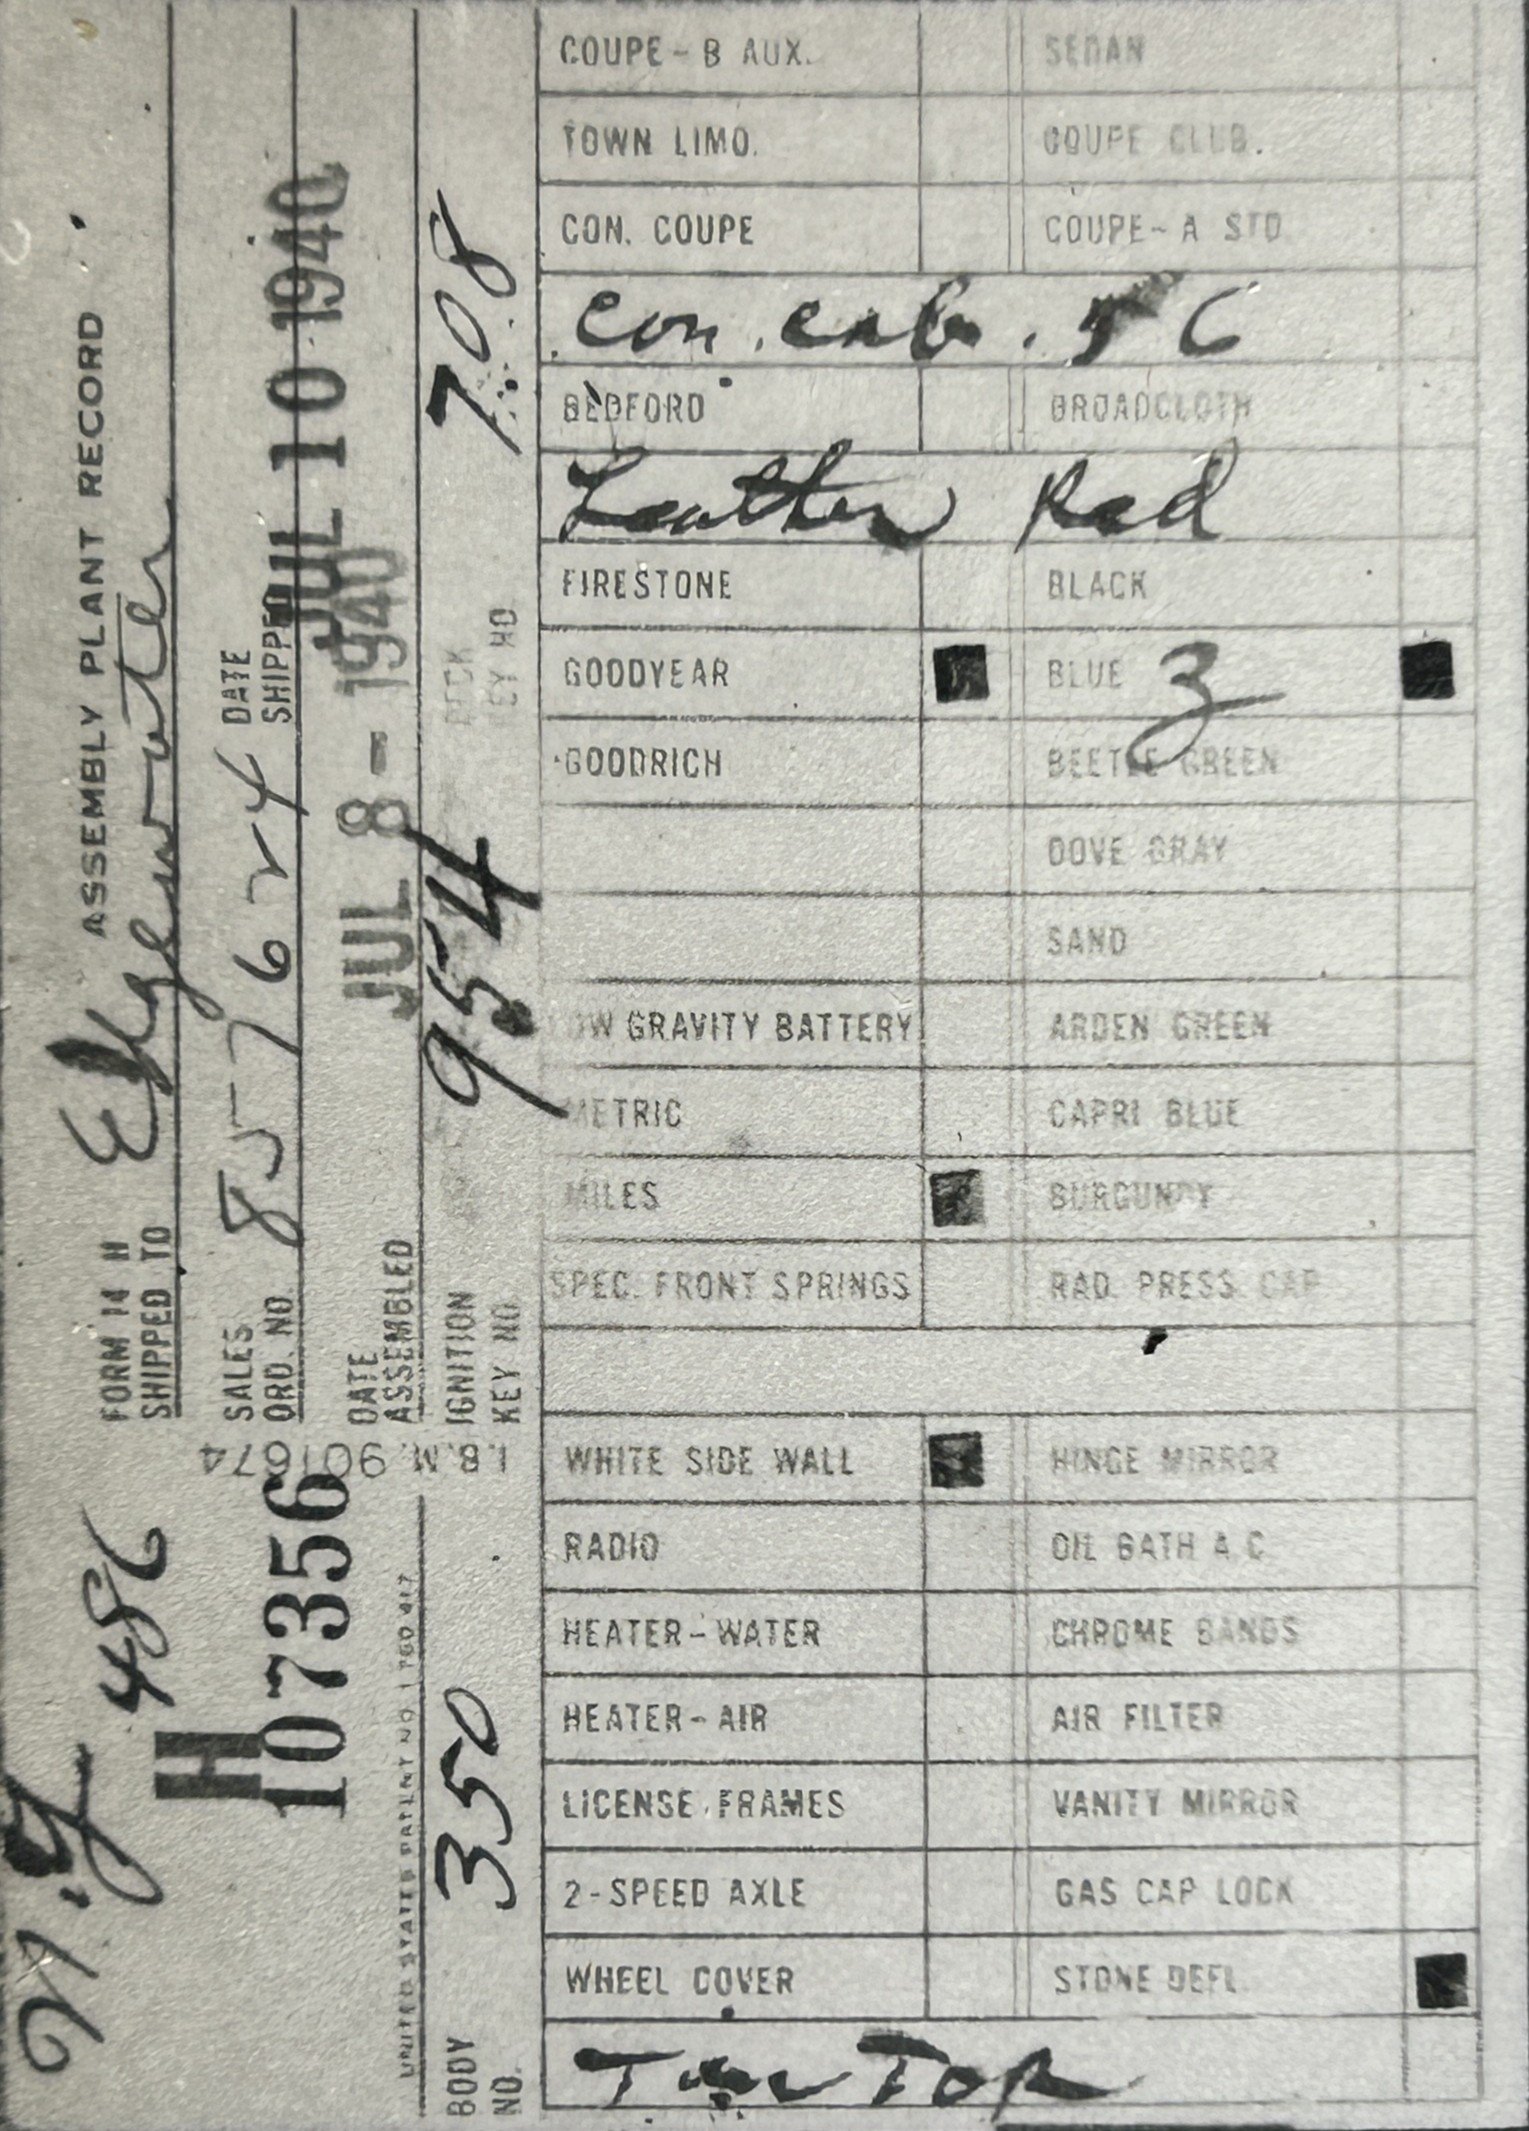 FORM 14 H ASSEMBLY PLANT RECORD
SHIPPED TO Edgewater
SALES ORD. NO. 857624
DATE SHIPPED JUL 10 1940
DATE ASSEMBLED JUL 8 - 1940
IGNITION KEY NO. 9554
DECK KEY NO. 708
I.B.M. 901674
N.Y. 486
H
107356
UNITED STATES PATENT NO. 1,780,417
BODY NO. 350
COUPE - B AUX. SEDAN
TOWN LIMO. COUPE CLUB.
CON. COUPE COUPE - A STD
Con. cab. 56
BEDFORD BROADCLOTH
Leather Red
FIRESTONE BLACK
GOODYEAR BLUE 3
GOODRICH BEETLE GREEN
DOVE GRAY
SAND
LOW GRAVITY BATTERY ARDEN GREEN
METRIC CAPRI BLUE
MILES BURGUNDY
SPEC. FRONT SPRINGS RAD. PRESS. CAP
WHITE SIDE WALL HINGE MIRROR
RADIO OIL BATH A.C.
HEATER - WATER CHROME BANDS
HEATER - AIR AIR FILTER
LICENSE FRAMES VANITY MIRROR
2 - SPEED AXLE GAS CAP LOCK
WHEEL COVER STONE DEFL.
Tan Top